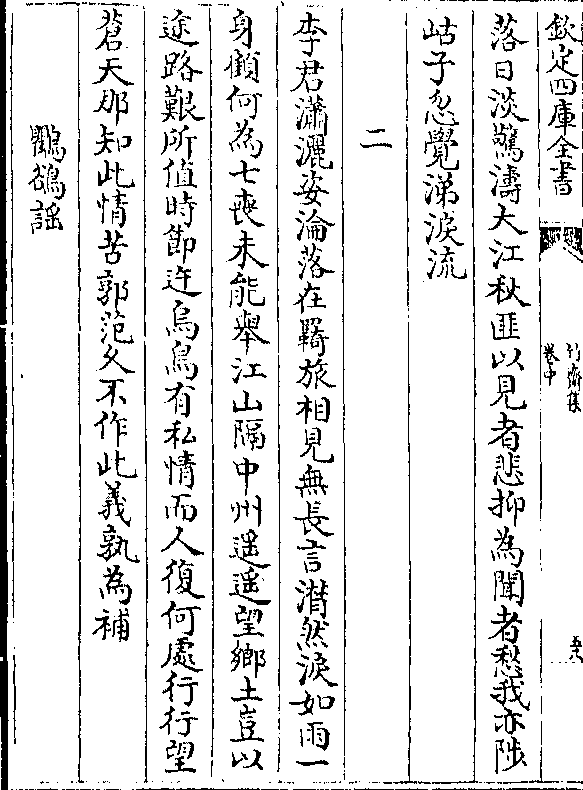 欽定四庫全書
竹齋集
卷中
落日淡驚濤大江秋匪以見者悲抑為聞者愁我亦陟
岵子忽覺涕淚流
二
李君瀟灑姿淪落在羇旅相見無長言潸然淚如雨一
身傾何為七喪未能舉江山隔中州遥遥望鄉土豈以
途路艱所值時節迕烏鳥有私情而人復何處行行望
蒼天那知此情苦郭范久不作此義孰為補
鸜鵒謡